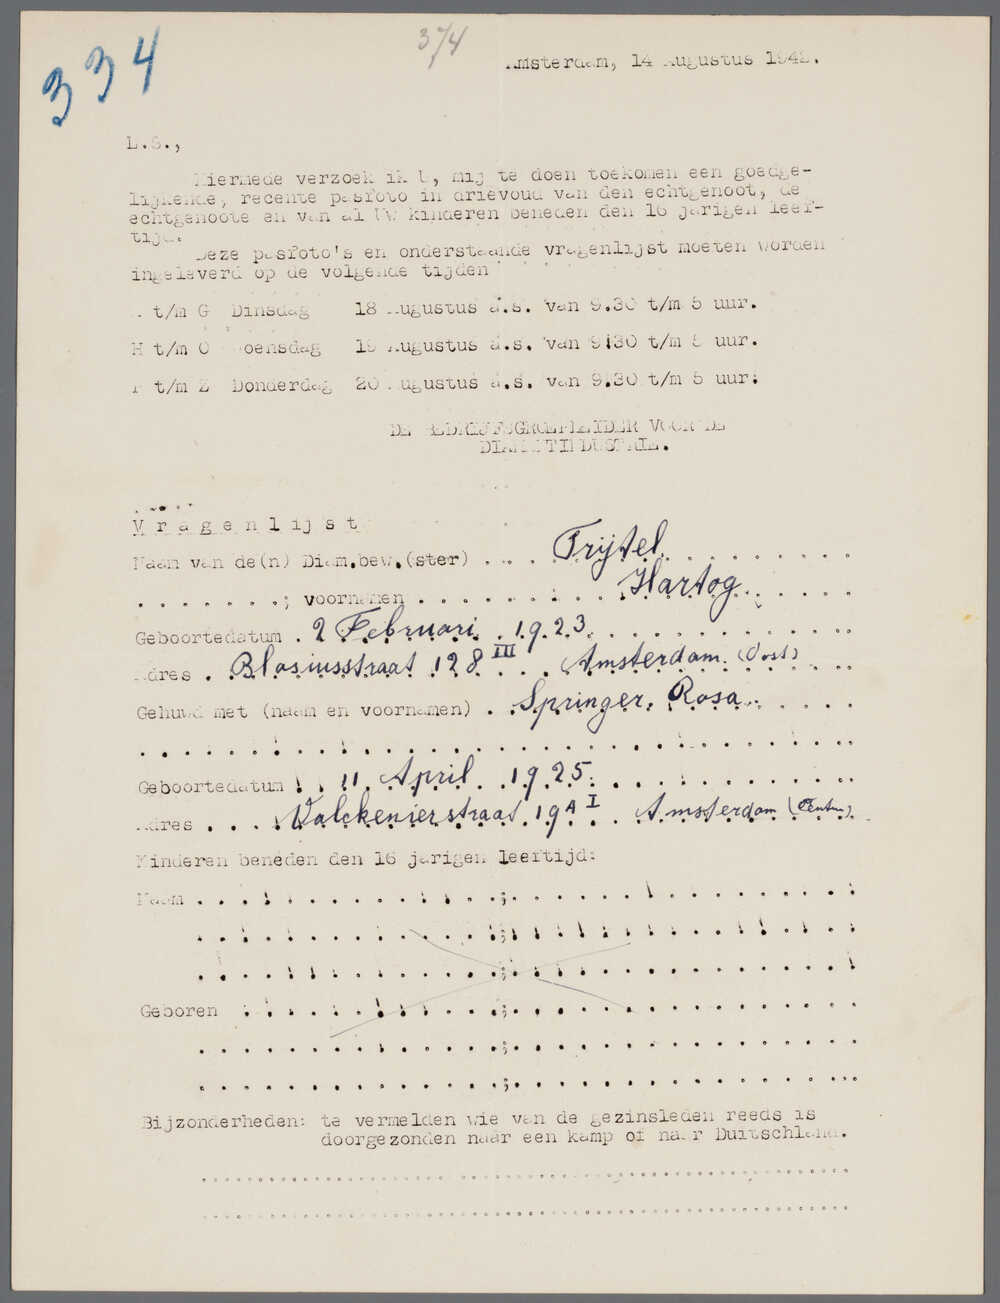 334
374
Amsterdam, 14 Augustus 1942.
L.S.,
Hiermede verzoek ik U, mij te doen toekomen een goedge-
lijkende, recente pasfoto in drievoud van den echtgenoot, de
echtgenoote en van al Uw kinderen beneden den 16 jarigen leef-
tijd.
Deze pasfoto's en onderstaande vragenlijst moeten worden
ingeleverd op de volgende tijden
A t/m G Dinsdag 18 Augustus a.s. van 9.30 t/m 5 uur.
H t/m O Woensdag 19 Augustus a.s. van 9.30 t/m 5 uur.
P t/m Z Donderdag 20 Augustus a.s. van 9.30 t/m 5 uur.
DE BEDRIJFSGROEPLEIDER VOOR DE
DIAMANTINDUSTRIE.
Vragenlijst
Naam van de(n) Diam.bew.(ster) . . . Trijtel . . . . . . . . .
. . . . . . .; voornamen . . . . . . . . . Hartog . . . . .
Geboortedatum . 2 Februari . 1923 . . . . . . . . . . . .
Adres . Blasiusstraat 128 III . . . Amsterdam. (Oost) . . .
Gehuwd met (naam en voornamen) . Springer, Rosa . . . . .
. . . . . . . . . . . . . . . . . . . . . . . . . . . . . . . .
Geboortedatum . . 11 April . 1925. . . . . . . . . . . . .
Adres . . . Valckenierstraat 19A I . . Amsterdam (Centr.)
Kinderen beneden den 16 jarigen leeftijd:
Naam . . . . . . . . . . . . . . ; . . . . . . . . . . . . . . . .
. . . . . . . . . . . . . . ; . . . . . . . . . . . . . . . .
. . . . . . . . . . . . . . ; . . . . . . . . . . . . . . . .
Geboren . . . . . . . . . . . . ; . . . . . . . . . . . . . . . .
. . . . . . . . . . . . . . ; . . . . . . . . . . . . . . . .
. . . . . . . . . . . . . . ; . . . . . . . . . . . . . . . .
Bijzonderheden: te vermelden wie van de gezinsleden reeds is
doorgezonden naar een kamp of naar Duitschland.
. . . . . . . . . . . . . . . . . . . . . . . . . . . . . . . .
. . . . . . . . . . . . . . . . . . . . . . . . . . . . . . . .